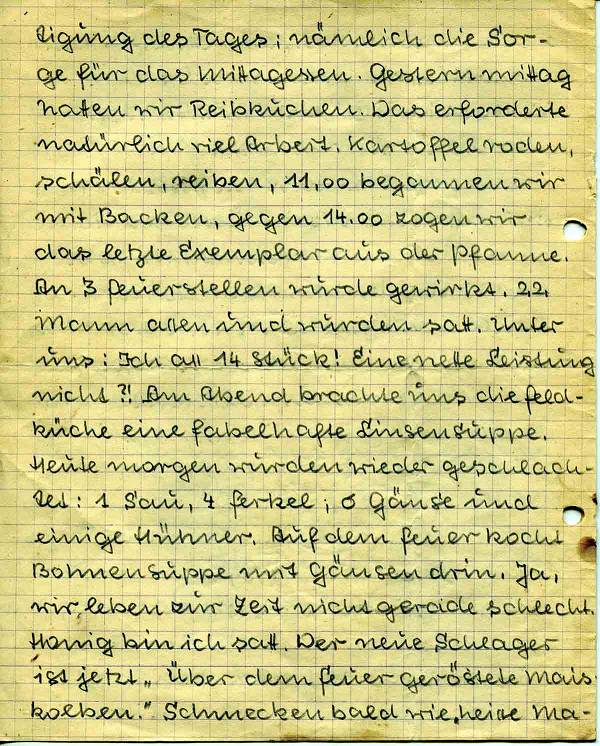 tigung des Tages; nämlich die Sor-
ge für das Mittagessen. Gestern mittag
hatten wir Reibkuchen. Das erforderte
natürlich viel Arbeit. Kartoffel roden,
schälen, reiben, 11,00 begannen wir
mit Backen, gegen 14.00 zogen wir
das letzte Exemplar aus der Pfanne.
An 3 Feuerstellen wurde gewirkt. 22
Mann assen und wurden satt. Unter
uns: Ich ass 14 Stück! Eine nette Leistung
nicht?! Am Abend brachte uns die Feld-
küche eine fabelhafte Linsensuppe.
Heute morgen wurden wieder geschlach-
tet: 1 Sau, 4 Ferkel; 6 Gänse und
einige Hühner. Auf dem Feuer kocht
Bohnensuppe mit Gänsen drin. Ja,
wir leben zur Zeit nicht gerade schlecht.
Honig bin ich satt. Der neue Schlager
ist jetzt „Über dem Feuer geröstete Mais-
kolben." Schmecken bald wie heise Ma-